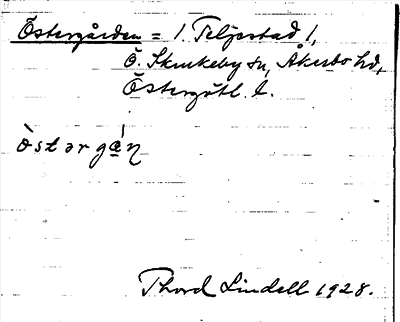 Östergården = 1. Teljestad 1,
Ö. Skrukeby sn, Åkerbo hd,
Östergötl. l.
òstərgá̱ɳ
Thord Lindell 1928.